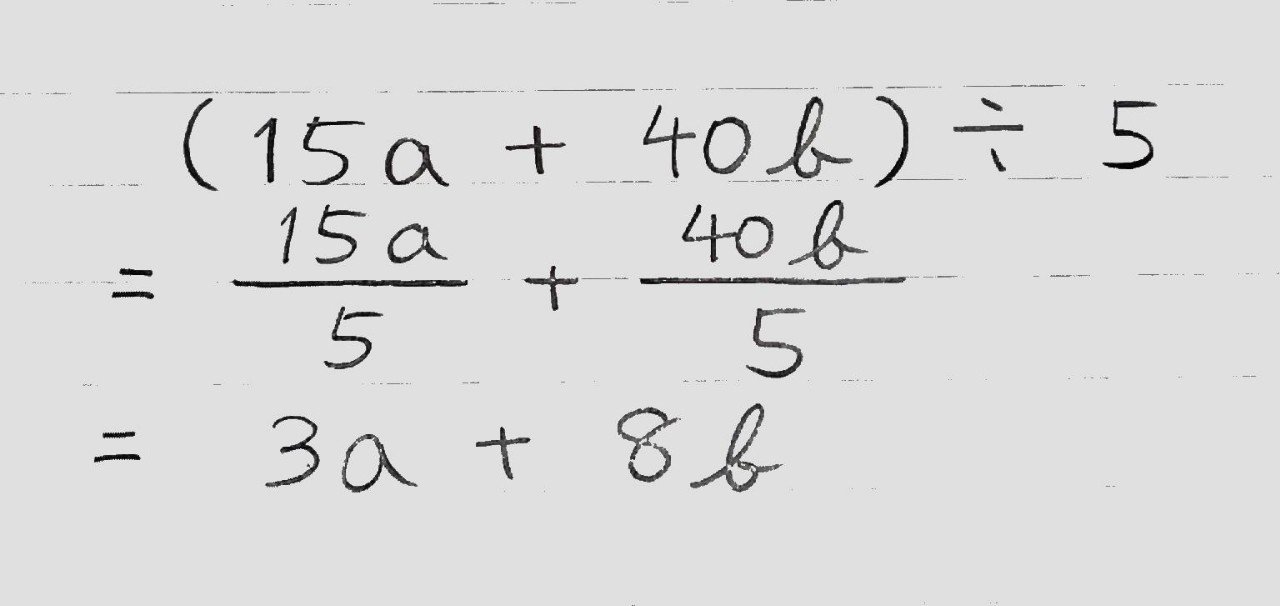 (15a + 40b) ÷ 5
= 15a/5 + 40b/5
= 3a + 8b